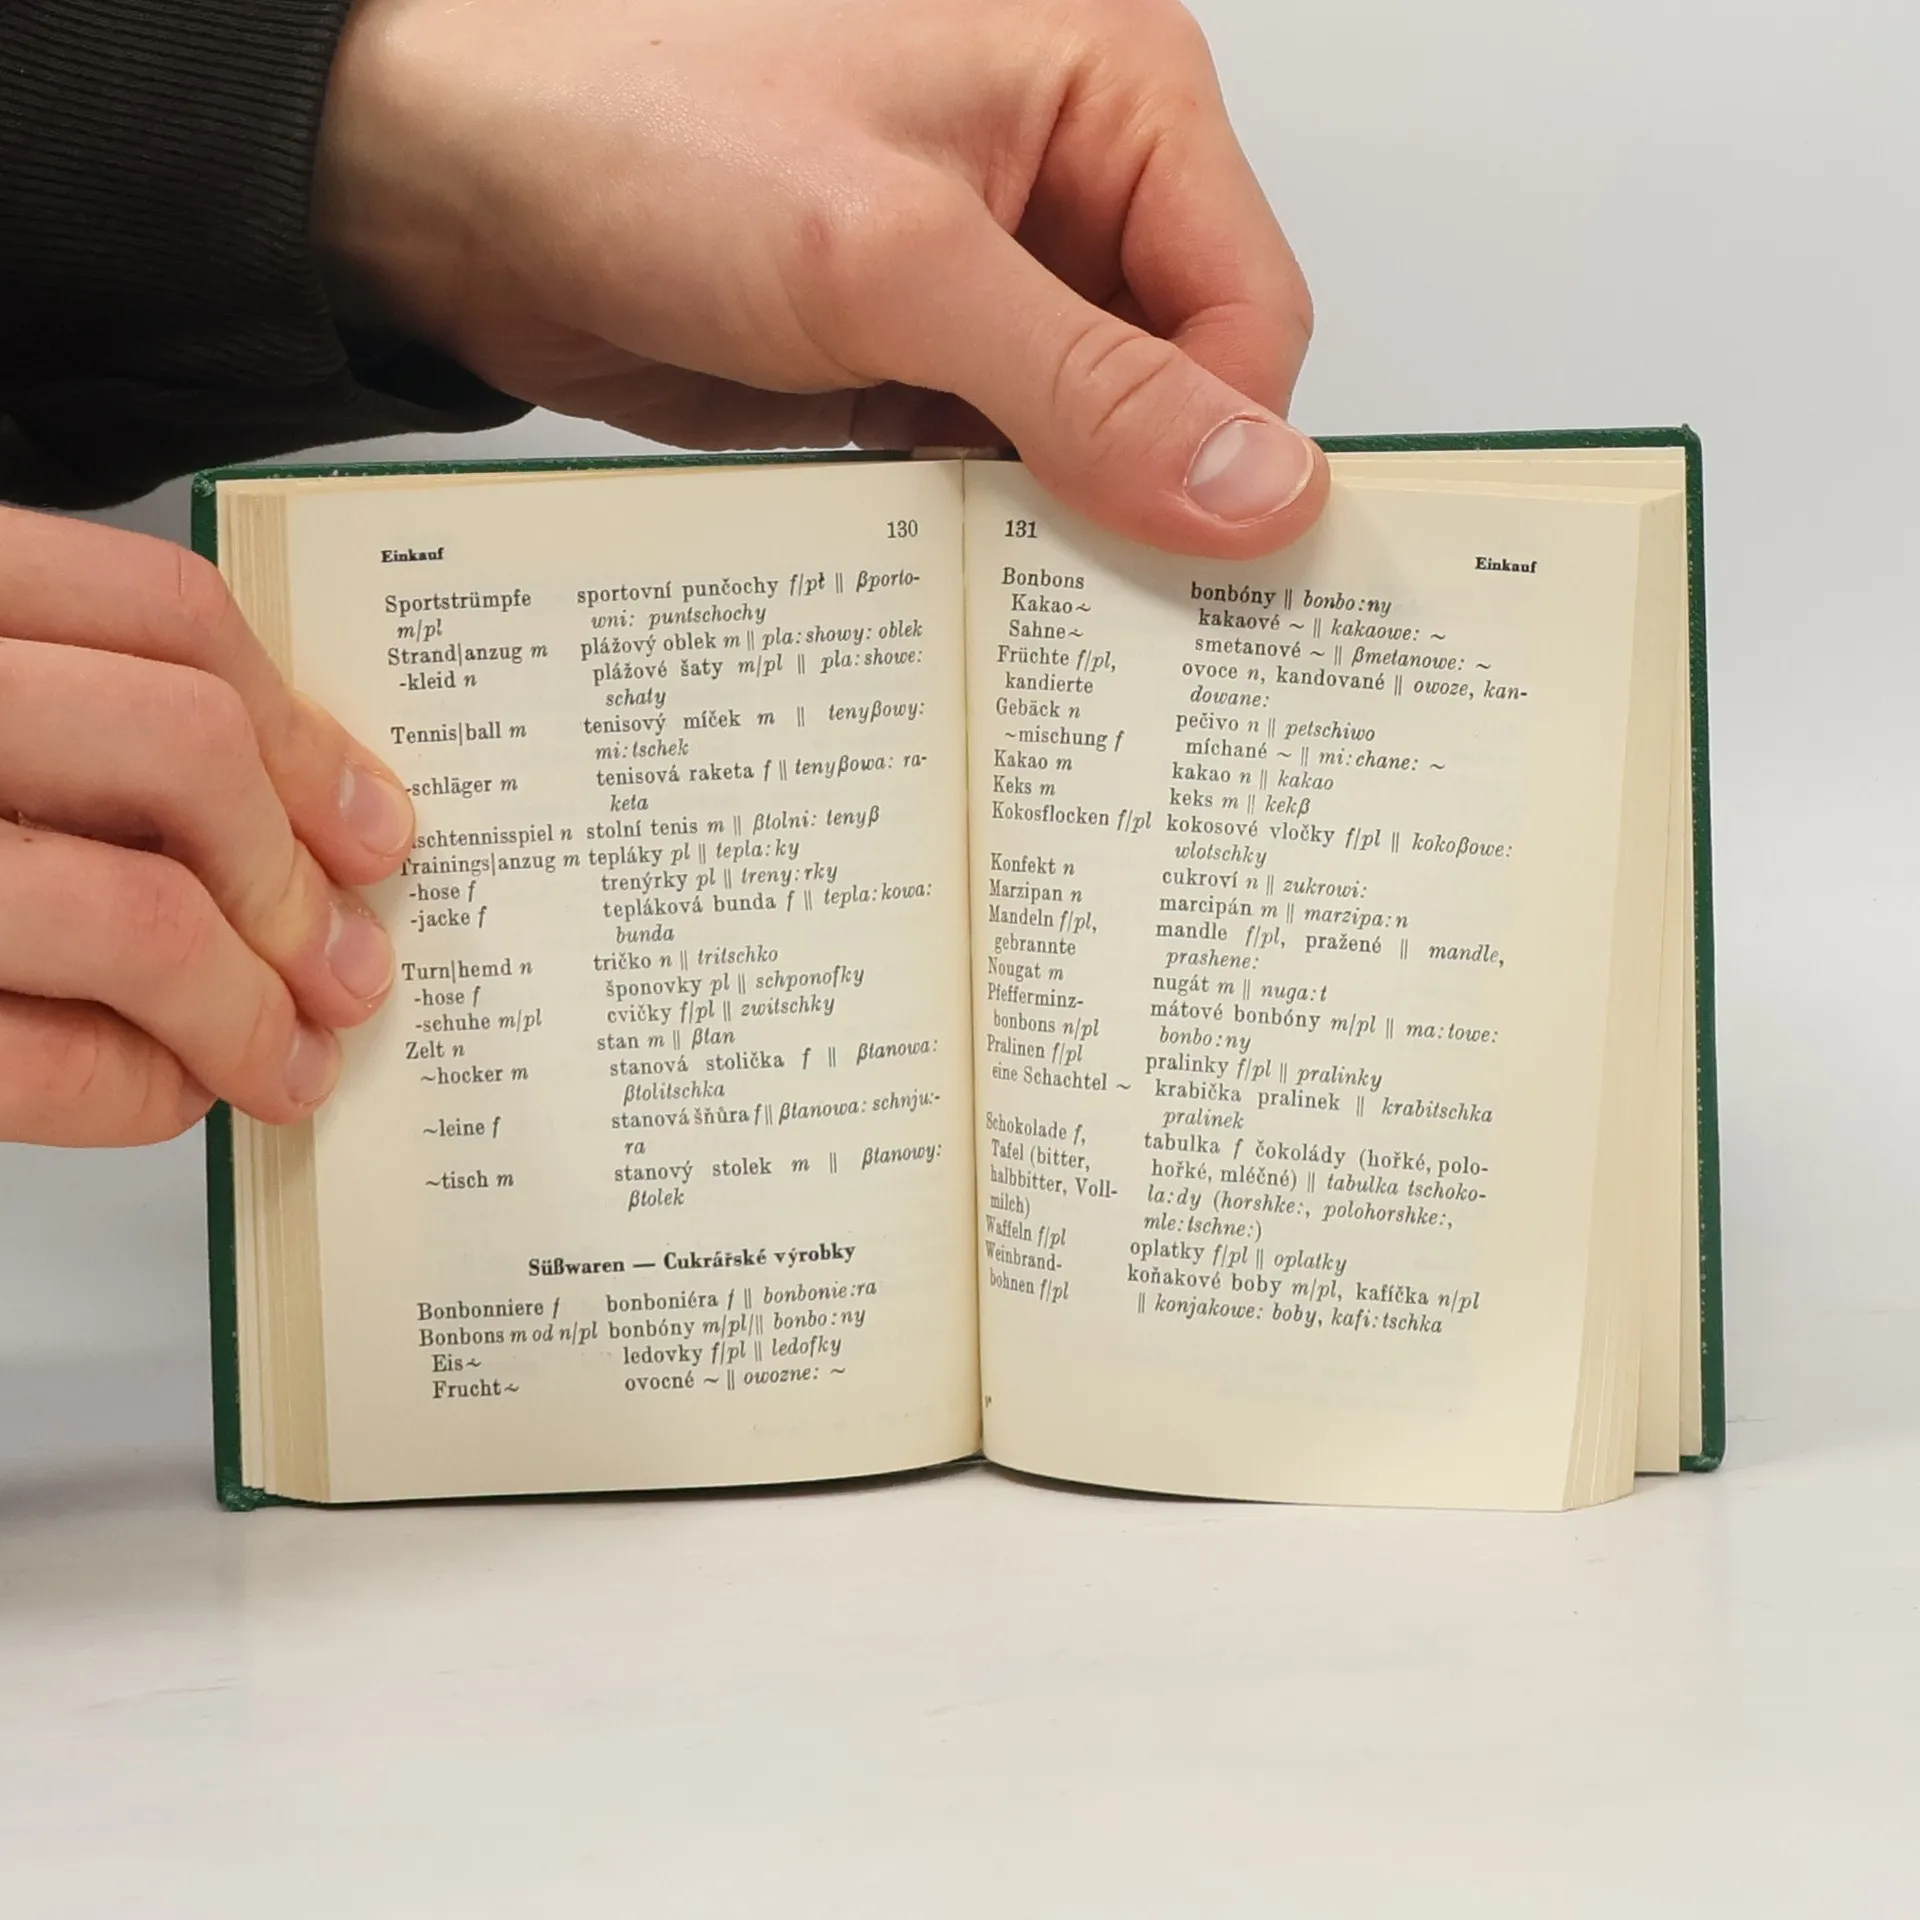 130
Einkauf
Sportstrümpfe sportovní punčochy f/pl || βporto-
m/pl wni: puntschochy
Strand|anzug m plážový oblek m || pla:showy: oblek
-kleid n plážové šaty m/pl || pla:showe:
schaty
Tennis|ball m tenisový míček m || tenyβowy:
mi:tschek
-schläger m tenisová raketa f || tenyβowa: ra-
keta
schtennisspiel n stolní tenis m || βtolni: tenyβ
Trainings|anzug m tepláky pl || tepla:ky
-hose f trenýrky pl || treny:rky
-jacke f tepláková bunda f || tepla:kowa:
bunda
Turn|hemd n tričko n || tritschko
-hose f šponovky pl || schponofky
-schuhe m/pl cvičky f/pl || zwitschky
Zelt n stan m || βtan
~hocker m stanová stolička f || βtanowa:
βtolitschka
~leine f stanová šňůra f || βtanowa: schnju:-
ra
~tisch m stanový stolek m || βtanowy:
βtolek
Süßwaren — Cukrářské výrobky
Bonbonniere f bonboniéra f || bonbonie:ra
Bonbons m od n/pl bonbóny m/pl || bonbo:ny
Eis~ ledovky f/pl || ledofky
Frucht~ ovocné ~ || owozne: ~
131
Einkauf
Bonbons bonbóny || bonbo:ny
Kakao~ kakaové ~ || kakaowe: ~
Sahne~ smetanové ~ || βmetanowe: ~
Früchte f/pl, ovoce n, kandované || owoze, kan-
kandierte dowane:
Gebäck n pečivo n || petschiwo
~mischung f míchané ~ || mi:chane: ~
Kakao m kakao n || kakao
Keks m keks m || kekβ
Kokosflocken f/pl kokosové vločky f/pl || kokoβowe:
wlotschky
Konfekt n cukroví n || zukrowi:
Marzipan n marcipán m || marzipa:n
Mandeln f/pl, mandle f/pl, pražené || mandle,
gebrannte prashene:
Nougat m nugát m || nuga:t
Pfefferminz- mátové bonbóny m/pl || ma:towe:
bonbons n/pl bonbo:ny
Pralinen f/pl pralinky f/pl || pralinky
eine Schachtel ~ krabička pralinek || krabitschka
pralinek
Schokolade f, tabulka f čokolády (hořké, polo-
Tafel (bitter, hořké, mléčné) || tabulka tschoko-
halbbitter, Voll- la:dy (horshke:, polohorshke:,
milch) mle:tschne:)
Waffeln f/pl oplatky f/pl || oplatky
Weinbrand- koňakové boby m/pl, kafíčka n/pl
bohnen f/pl || konjakowe: boby, kafi:tschka